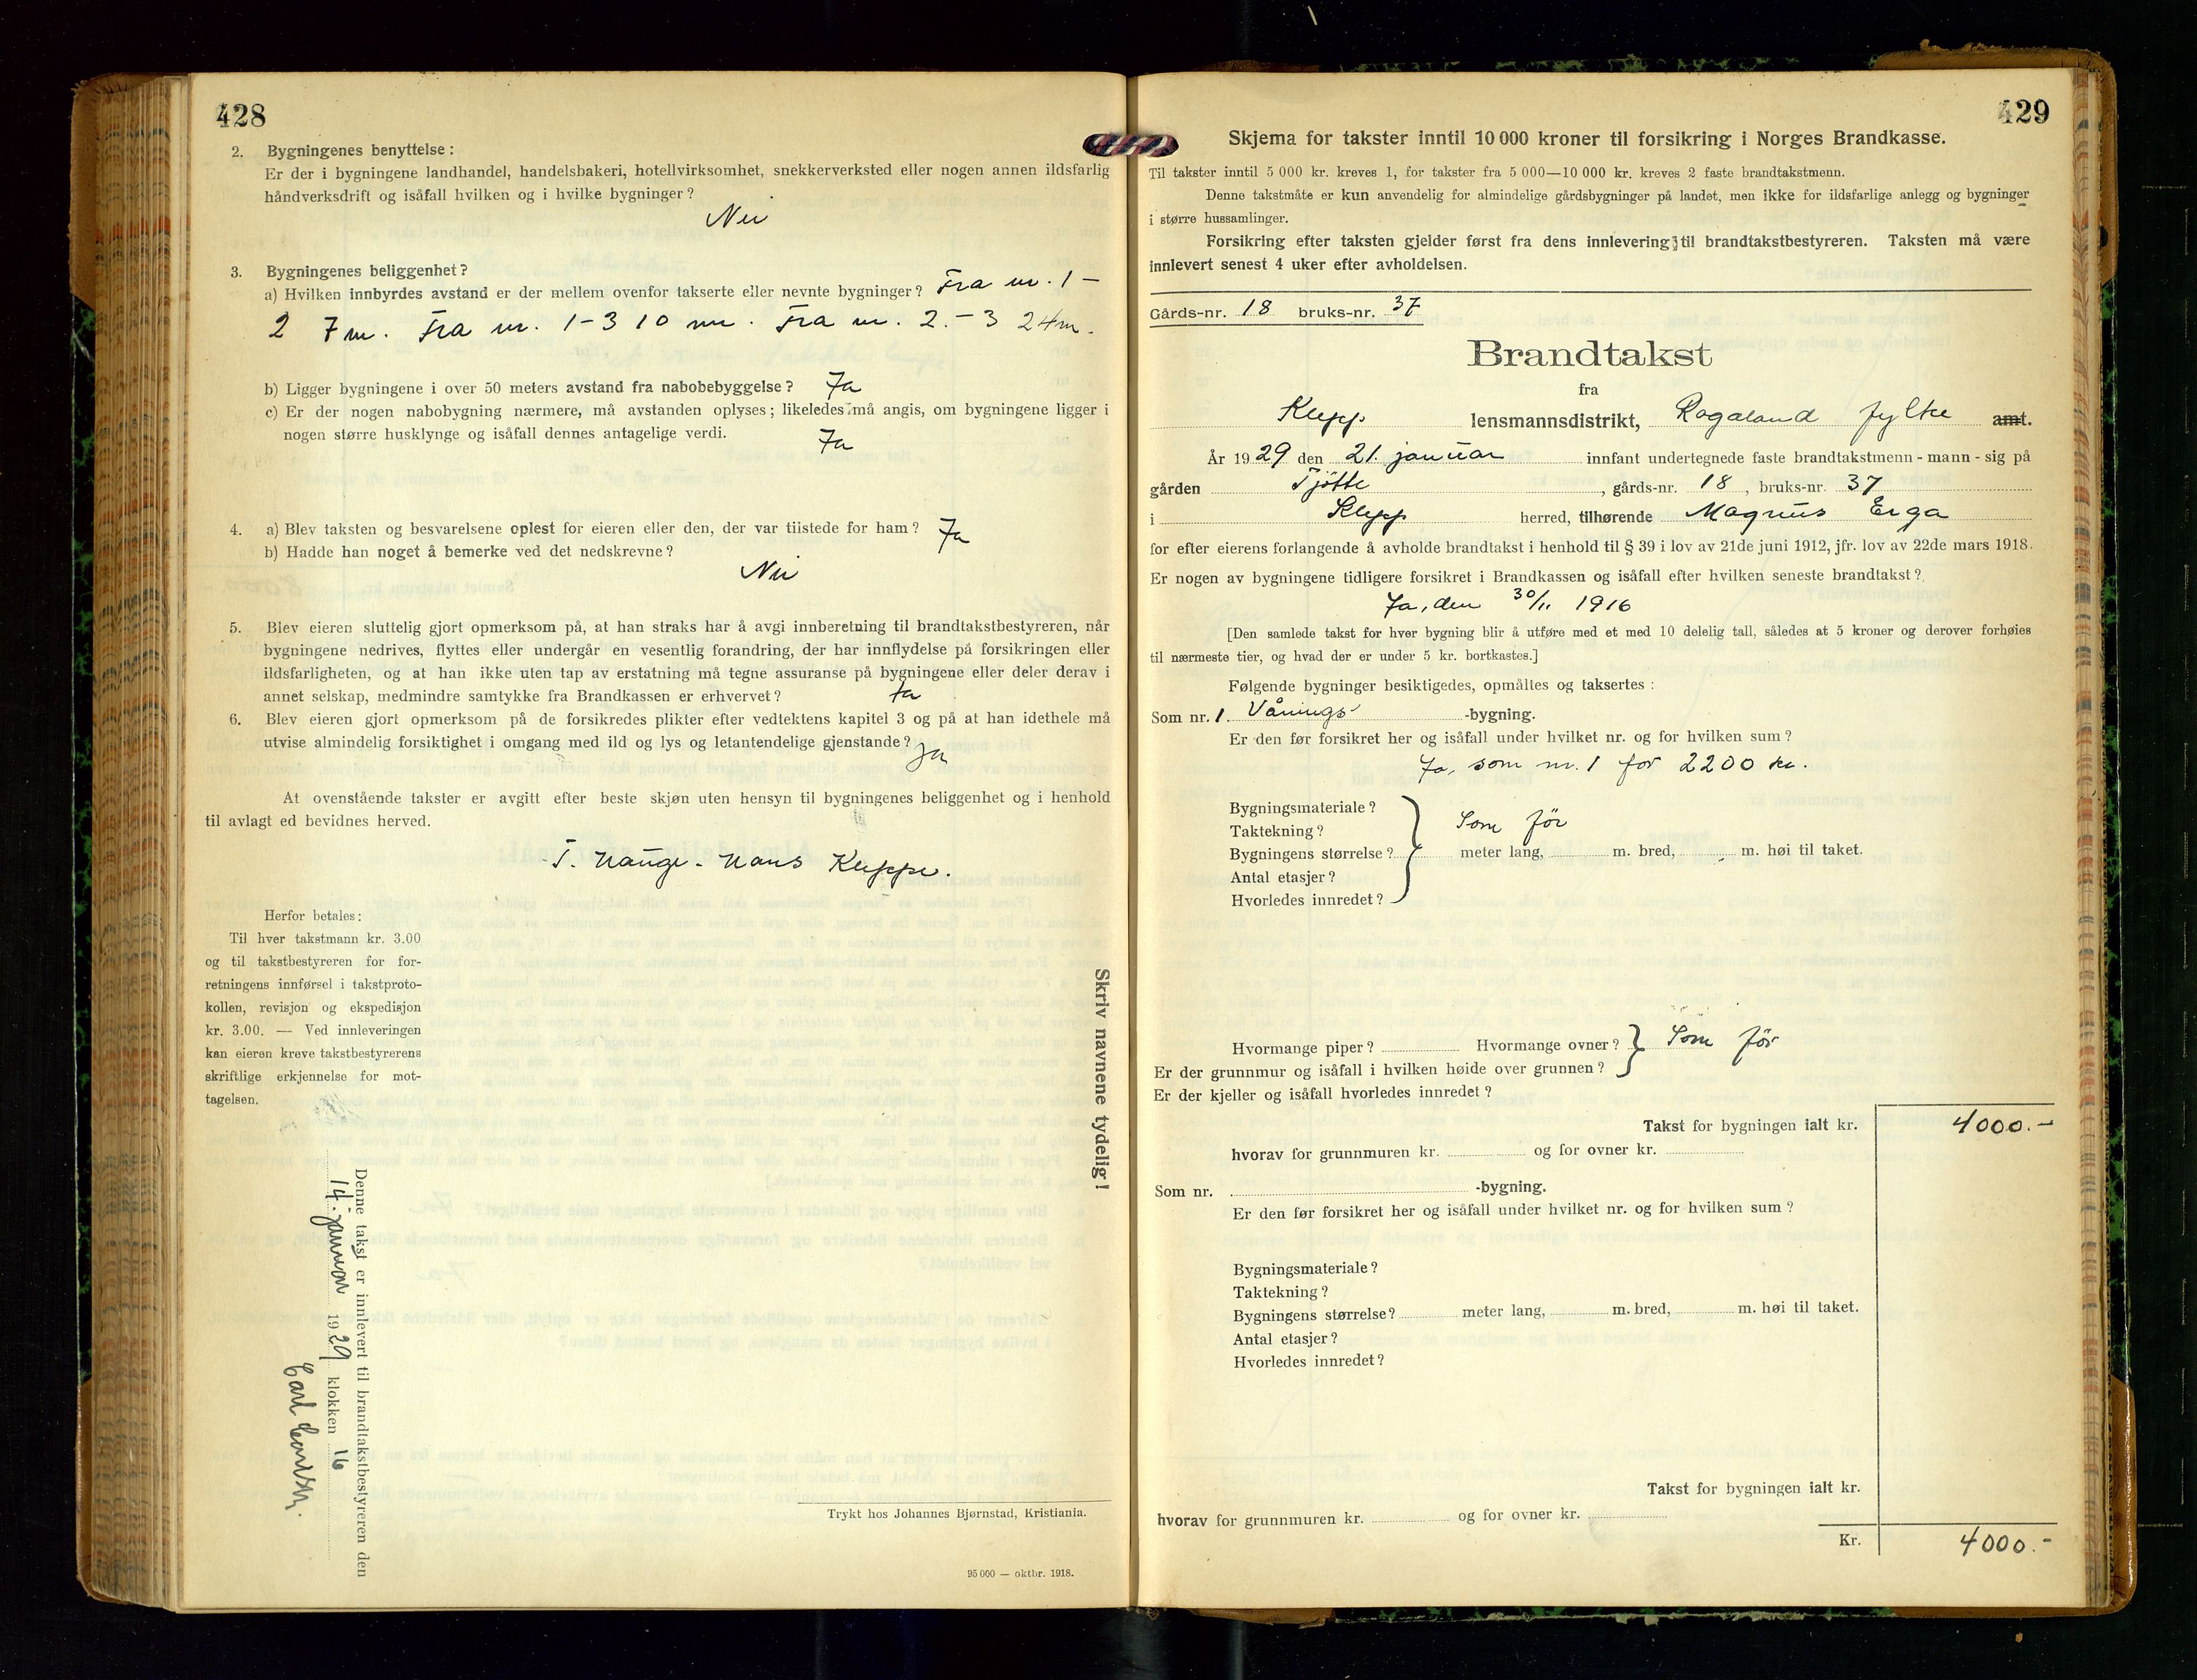 428
2. Bygningenes benyttelse:
Er der i bygningene landhandel, handelsbakeri, hotellvirksomhet, snekkerverksted eller nogen annen ildsfarlig
håndverksdrift og isåfall hvilken og i hvilke bygninger?
Nei
3. Bygningenes beliggenhet?
a) Hvilken innbyrdes avstand er der mellem ovenfor takserte eller nevnte bygninger? Fra nr. 1 -
2 7 m. Fra nr. 1-3 10 m. Fra nr. 2.-3 24 m.
b) Ligger bygningene i over 50 meters avstand fra nabobebyggelse? Ja
c) Er der nogen nabobygning nærmere, må avstanden oplyses; likeledes må angis, om bygningene ligger i
nogen større husklynge og isåfall dennes antagelige verdi.
Ja
4. a) Blev taksten og besvarelsene oplest for eieren eller den, der var tilstede for ham? Ja
b) Hadde han noget å bemerke ved det nedskrevne?
Nei
5. Blev eieren sluttelig gjort opmerksom på, at han straks har å avgi innberetning til brandtakstbestyreren, når
bygningene nedrives, flyttes eller undergår en vesentlig forandring, der har innflydelse på forsikringen eller
ildsfarligheten, og at han ikke uten tap av erstatning må tegne assuranse på bygningene eller deler derav i
annet selskap, medmindre samtykke fra Brandkassen er erhvervet? Ja
6. Blev eieren gjort opmerksom på de forsikredes plikter efter vedtektens kapitel 3 og på at han idethele må
utvise almindelig forsiktighet i omgang med ild og lys og letantendelige gjenstande? Ja
At ovenstående takster er avgitt efter beste skjøn uten hensyn til bygningenes beliggenhet og i henhold
til avlagt ed bevidnes herved.
T. Hauge. Hans Kleppe.
Herfor betales:
Til hver takstmann kr. 3.00
og til takstbestyreren for for-
retningens innførsel i takstproto-
kollen, revisjon og ekspedisjon
kr. 3.00. — Ved innleveringen
kan eieren kreve takstbestyrerens
skriftlige erkjennelse for mot-
tagelsen.
Skriv navnene tydelig!
Denne takst er innlevert til brandtakstbestyreren den
14. januar 1929 klokken 16
Trykt hos Johannes Bjørnstad, Kristiania.
95 000 — oktbr. 1918.
429
Skjema for takster inntil 10 000 kroner til forsikring i Norges Brandkasse.
Til takster inntil 5 000 kr. kreves 1, for takster fra 5 000—10 000 kr. kreves 2 faste brandtakstmenn.
Denne takstmåte er kun anvendelig for almindelige gårdsbygninger på landet, men ikke for ildsfarlige anlegg og bygninger
i større hussamlinger.
Forsikring efter taksten gjelder først fra dens innlevering til brandtakstbestyreren. Taksten må være
innlevert senest 4 uker efter avholdelsen.
Gårds-nr. 18 bruks-nr. 37
Brandtakst
fra
Klepp lensmannsdistrikt, Rogaland fylke amt.
År 1929 den 21. januar innfant undertegnede faste brandtakstmenn - mann - sig på
gården Tjötte, gårds-nr. 18, bruks-nr. 37
i Klepp herred, tilhørende Magnus Erga
for efter eierens forlangende å avholde brandtakst i henhold til § 39 i lov av 21de juni 1912, jfr. lov av 22de mars 1918.
Er nogen av bygningene tidligere forsikret i Brandkassen og isåfall efter hvilken seneste brandtakst?
Ja, den 30/11 1916
[Den samlede takst for hver bygning blir å utføre med et med 10 delelig tall, således at 5 kroner og derover forhøies
til nærmeste tier, og hvad der er under 5 kr. bortkastes.]
Følgende bygninger besiktigedes, opmåltes og taksertes:
Som nr. 1 Vånings -bygning.
Er den før forsikret her og isåfall under hvilket nr. og for hvilken sum?
Ja, som nr. 1 for 2200 kr.
Bygningsmateriale?
Taktekning? Som för
Bygningens størrelse? meter lang, m. bred, m. høi til taket.
Antal etasjer?
Hvorledes innredet?
Hvormange piper? Hvormange ovner? Som för
Er der grunnmur og isåfall i hvilken høide over grunnen?
Er der kjeller og isåfall hvorledes innredet?
Takst for bygningen ialt kr. 4000.-
hvorav for grunnmuren kr. og for ovner kr.
Som nr. -bygning.
Er den før forsikret her og isåfall under hvilket nr. og for hvilken sum?
Bygningsmateriale?
Taktekning?
Bygningens størrelse? meter lang, m. bred, m. høi til taket.
Antal etasjer?
Hvorledes innredet?
Takst for bygningen ialt kr.
hvorav for grunnmuren kr. og for ovner kr.
Kr. 4000.-